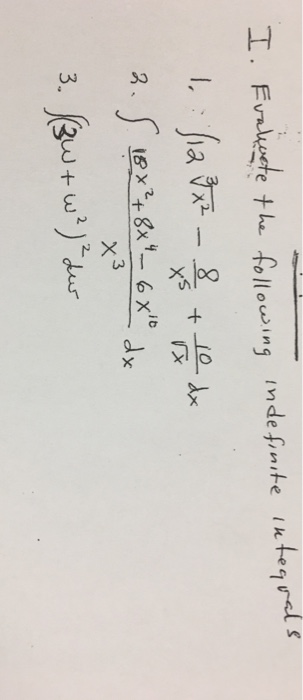 I. Evaluate the following indefinite integrals
1. ∫12 ∛x² − 8/x⁵ + 10/√x dx
2. ∫ (18x² + 8x⁴ − 6x¹⁰)/x³ dx
3. ∫(3w + w²)² dw